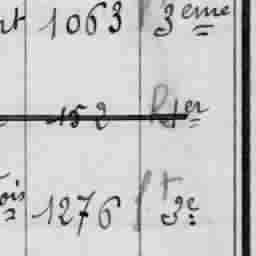 rt 1063 3eme
152 1er
ois 1276 3e